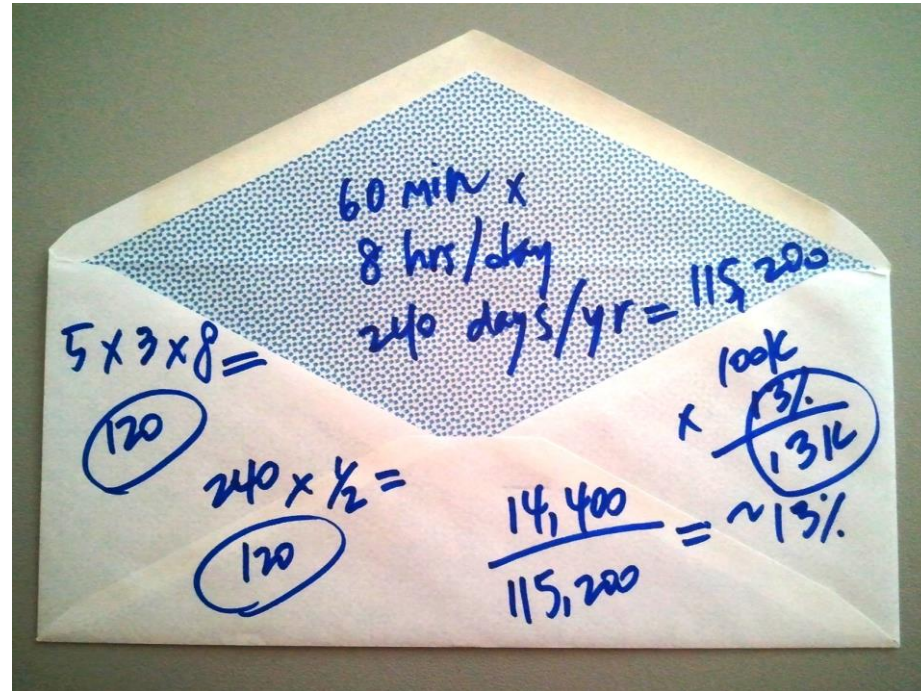 60 min x
8 hrs/day
240 days/yr = 115,200
5 x 3 x 8 =
120
240 x 1/2 =
120
14,400
115,200
= ~13%
100K
x 13%
13K